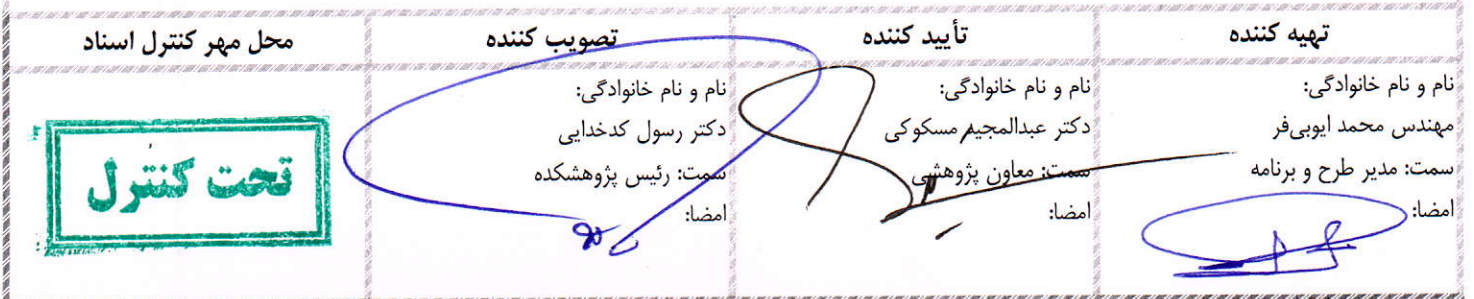 تهیه کننده
تأیید کننده
تصویب کننده
محل مهر کنترل اسناد
نام و نام خانوادگی:
مهندس محمد ایوبی‌فر
سمت: مدیر طرح و برنامه
امضا:
نام و نام خانوادگی:
دکتر عبدالمجید مسکوکی
سمت: معاون پژوهشی
امضا:
نام و نام خانوادگی:
دکتر رسول کدخدایی
سمت: رئیس پژوهشکده
امضا:
تحت کنترل